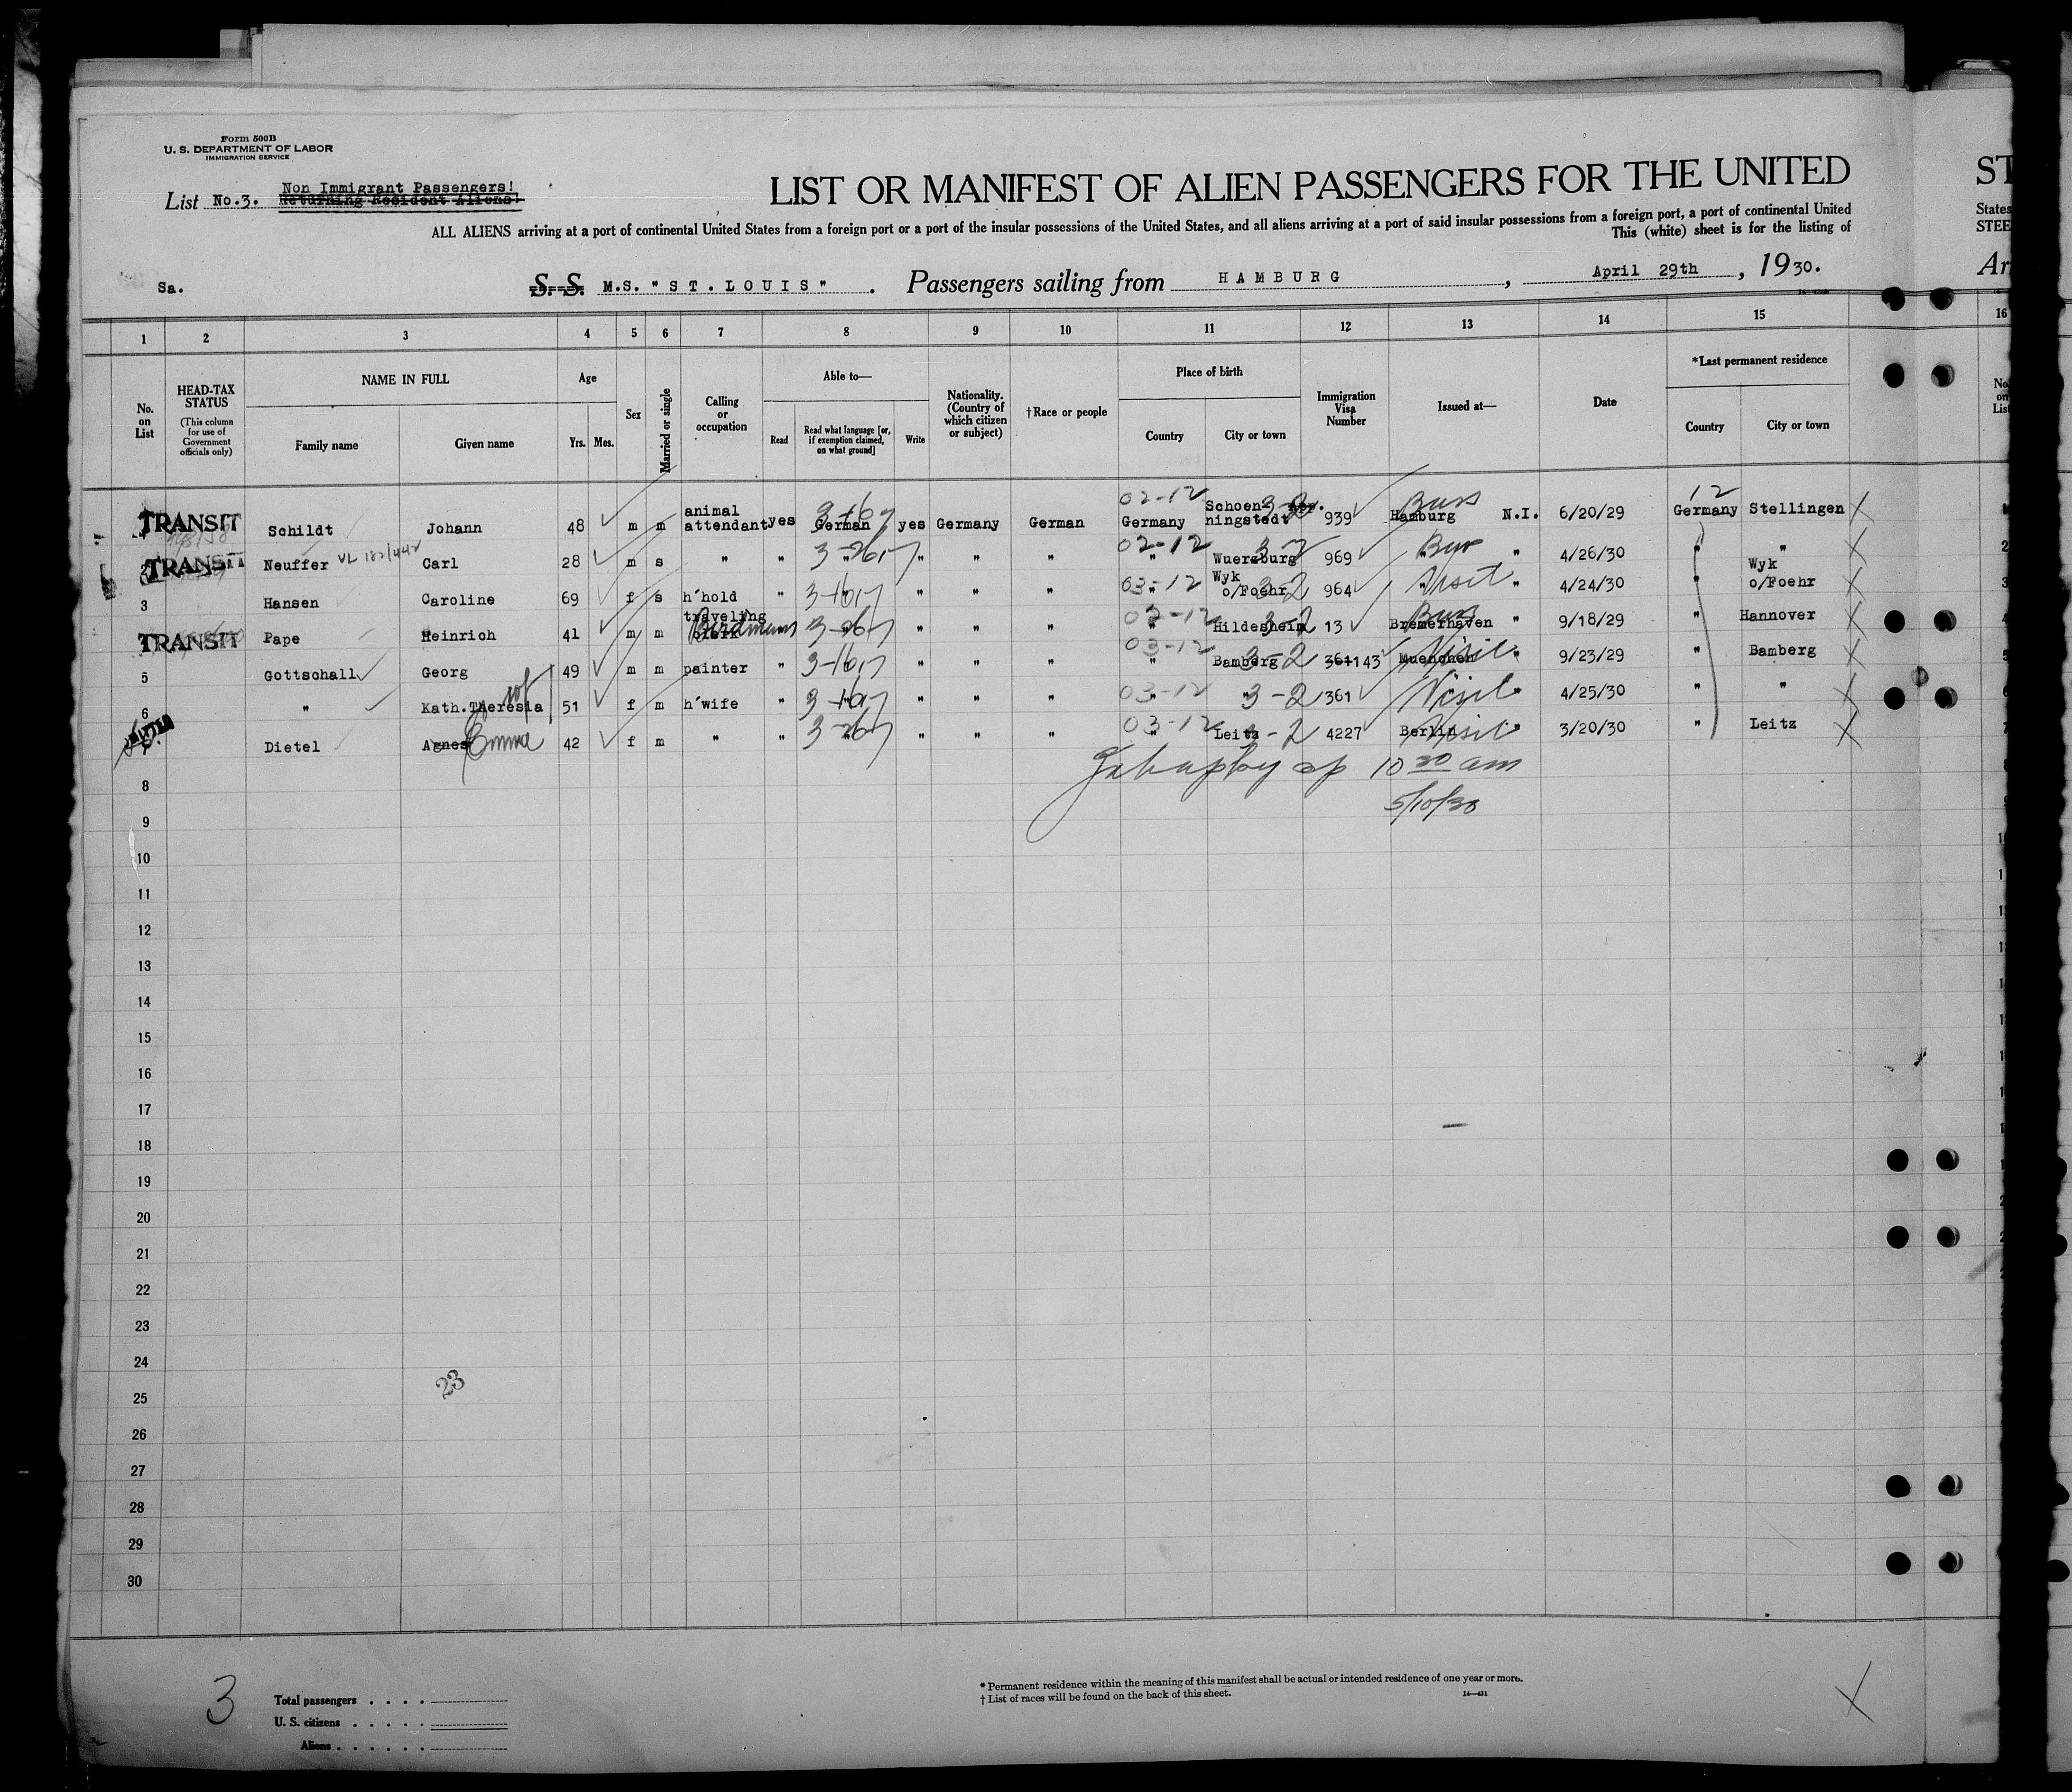 Form 500B
U. S. DEPARTMENT OF LABOR
IMMIGRATION SERVICE
List No.3. Non Immigrant Passengers!
Returning Resident Aliens!
LIST OR MANIFEST OF ALIEN PASSENGERS FOR THE UNITED
ST
ALL ALIENS arriving at a port of continental United States from a foreign port or a port of the insular possessions of the United States, and all aliens arriving at a port of said insular possessions from a foreign port, a port of continental United
States
This (white) sheet is for the listing of
STEE
Sa. S. S. M.S. "ST.LOUIS". Passengers sailing from HAMBURG, April 29th, 1930.
Ar
1 2 3 4 5 6 7 8 9 10 11 12 13 14 15 16
No. on List
HEAD-TAX STATUS
(This column for use of Government officials only)
NAME IN FULL
Family name
Given name
Age
Yrs. Mos.
Sex
Married or single
Calling or occupation
Able to—
Read
Read what language [or, if exemption claimed, on what ground]
Write
Nationality. (Country of which citizen or subject)
†Race or people
Place of birth
Country
City or town
Immigration Visa Number
Issued at—
Date
*Last permanent residence
Country
City or town
No. on List
TRANSIT Schildt Johann 48 m m animal attendant yes German yes Germany German 02-12 Germany Schoen-ningstedt 3-2 939 Hamburg Bus N.I. 6/20/29 12 Germany Stellingen
TRANSIT Neuffer VL 182/442 Carl 28 m s " " " " " " 02-12 " Wuerzburg 3-2 969 " Bus " 4/26/30 " "
3 Hansen Caroline 69 f s h'hold " " " " " 03-12 " Wyk o/Foehr 3-2 964 " Visit " 4/24/30 " Wyk o/Foehr
TRANSIT Pape Heinrich 41 m m traveling clerk " " " " " 02-12 " Hildesheim 3-2 13 Bremerhaven Bus " 9/18/29 " Hannover
5 Gottschall Georg 49 m m painter " " " " " 03-12 " Bamberg 3-2 361 143 Muenchen Visit " 9/23/29 " Bamberg
6 " Kath.Theresia wf 51 f m h'wife " " " " " 03-12 " " 3-2 361 Visit " 4/25/30 " "
7 Dietel Agnes Emma 42 f m " " " " " " 03-12 " Leitz 3-2 4227 Berlin Visit " 3/20/30 " Leitz
10 30 am
8
5/10/30
9
10
11
12
13
14
15
16
17
18
19
20
21
22
23
24
23
25
26
27
28
29
30
3
Total passengers
U. S. citizens
Aliens
* Permanent residence within the meaning of this manifest shall be actual or intended residence of one year or more.
† List of races will be found on the back of this sheet.